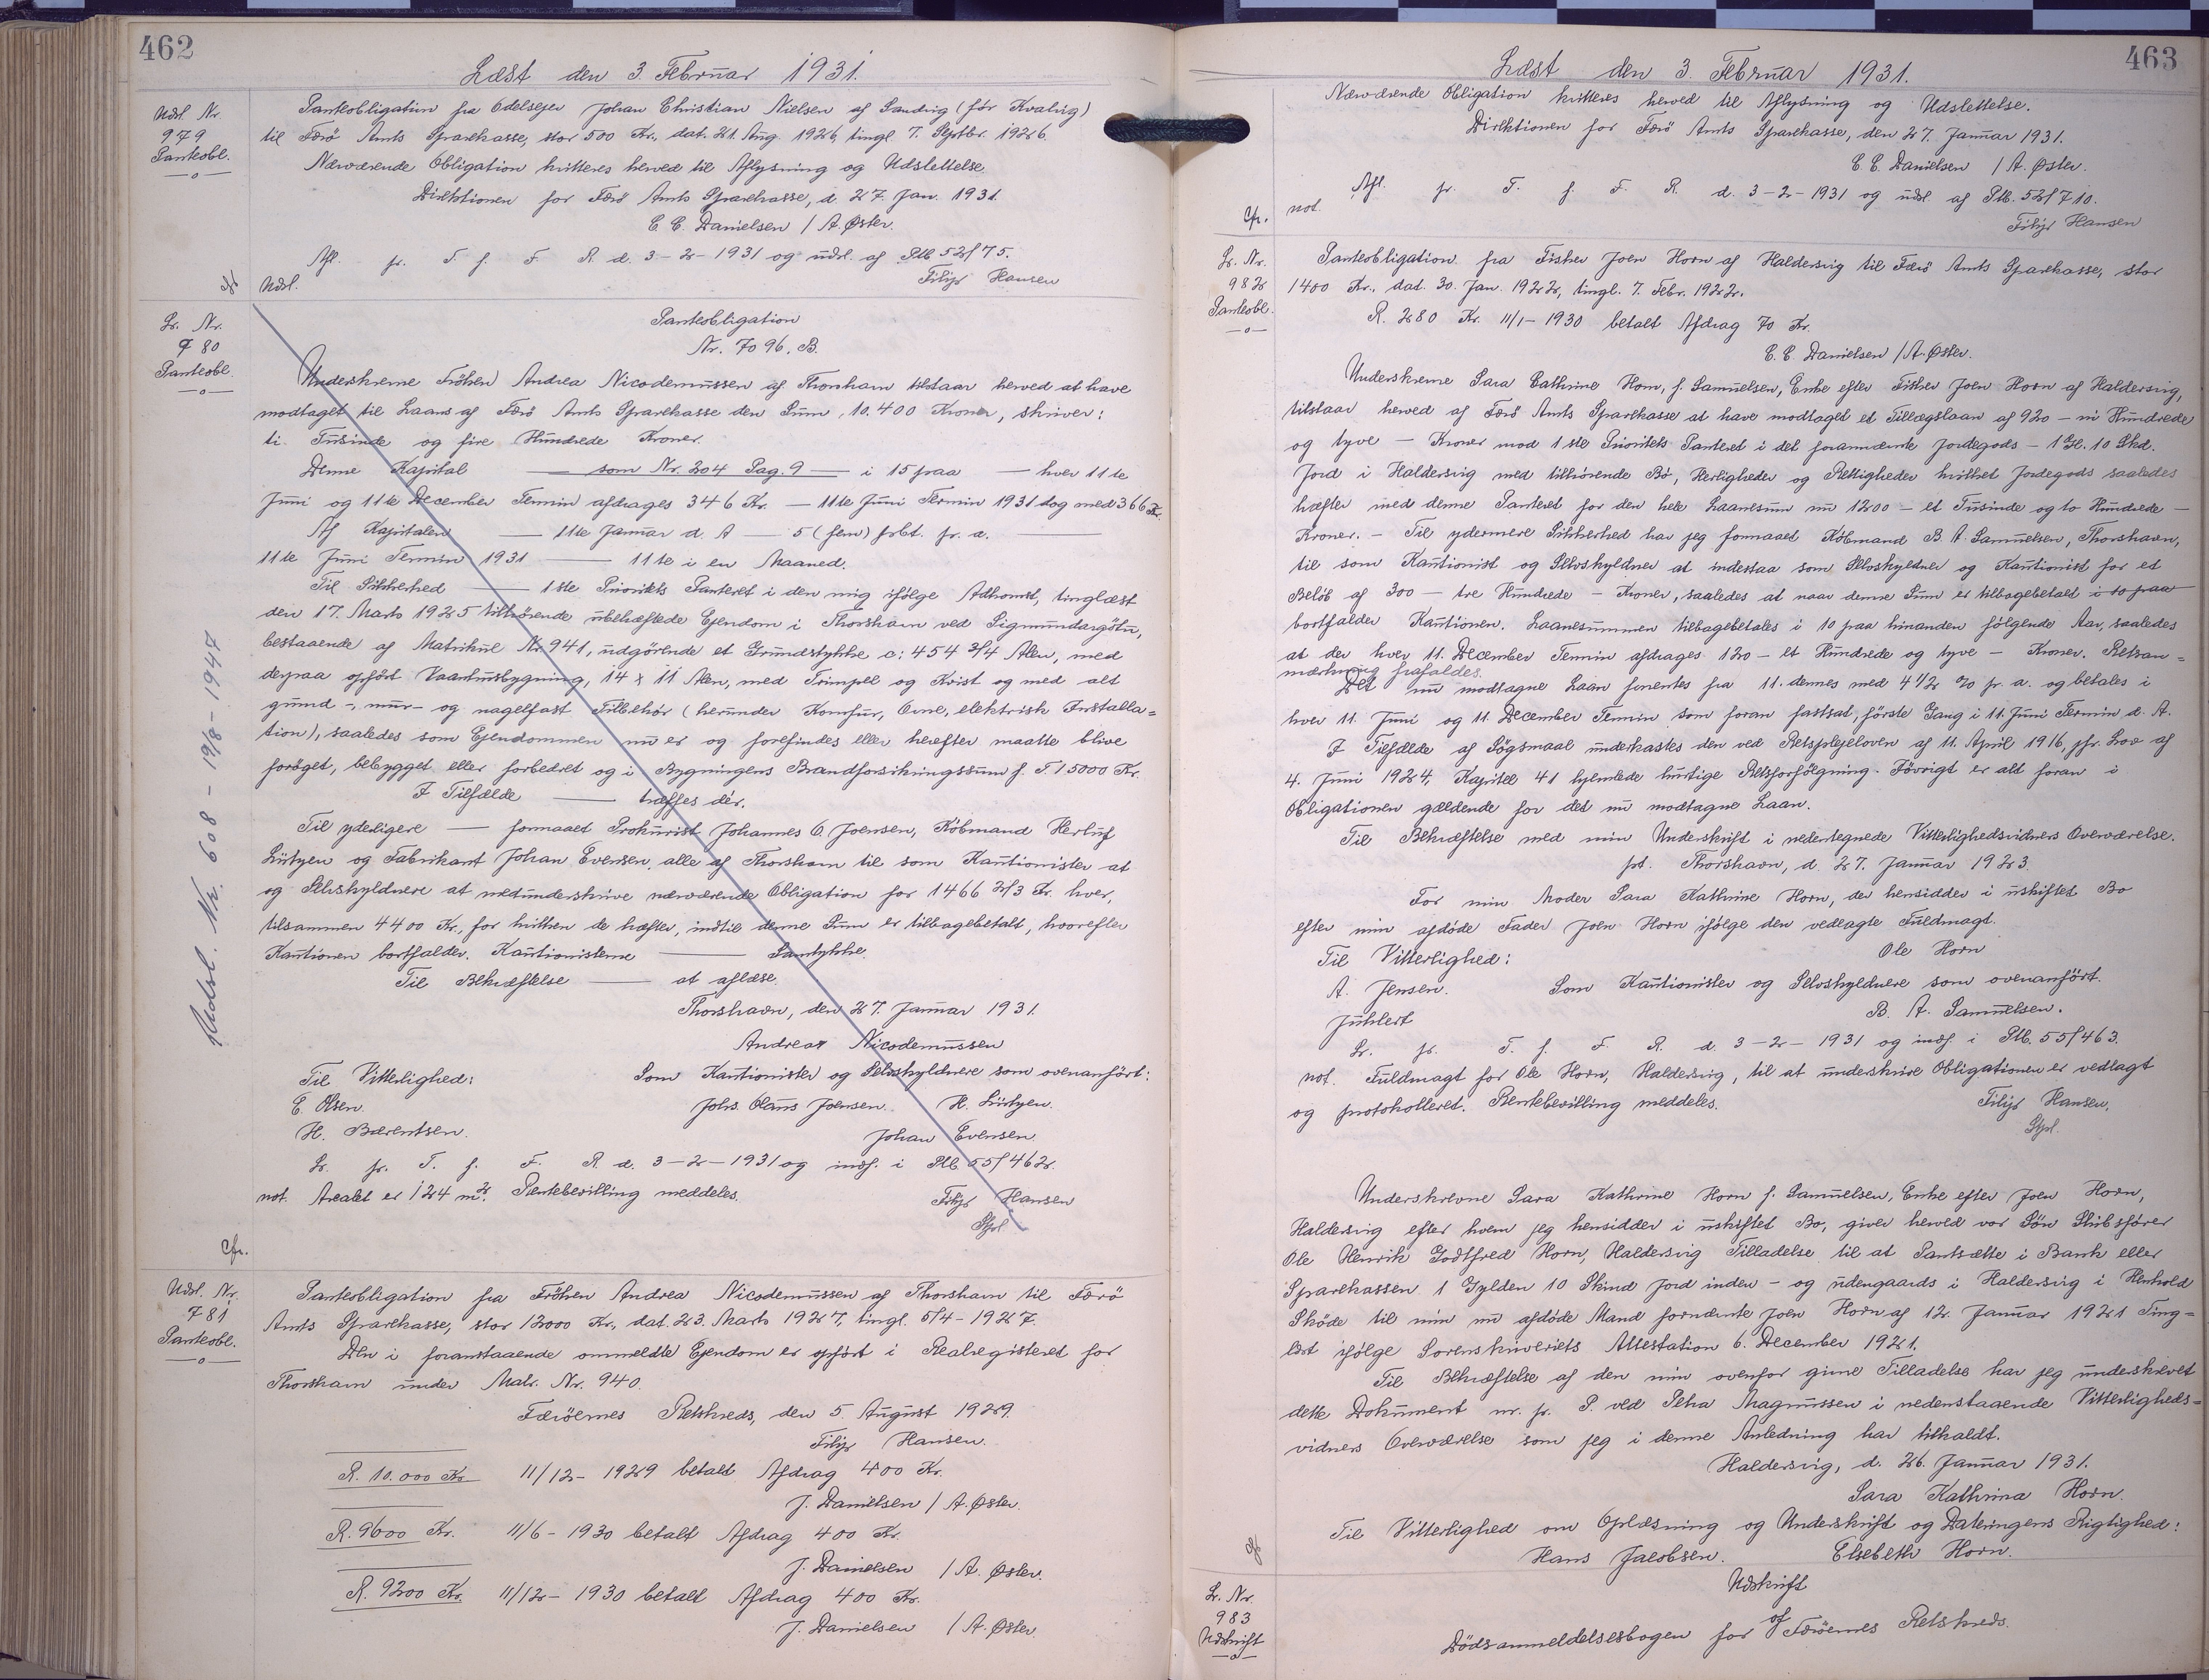 462
Læst den 3. Februar 1931.
Udsl. Nr.
979
Panteobl.
Panteobligation fra Odelsejer Johan Christian Nielsen af Sandvig (før Kvalvig)
til Færö Amts Sparekasse, stor 500 Kr., dat. 21. Aug. 1926, tingl. 7. Septbr. 1926.
Nærværende Obligation kvitteres herved til Aflysning og Udslettelse.
Direktionen for Færö Amts Sparekasse, d. 27. Jan. 1931.
C. C. Danielsen / A. Øster.
Afl. fr. T. f. F. R. d. 3-2-1931 og udsl. af Ptb. 52/75.
Udsl. Filip Hansen
Lr. Nr.
980
Panteobl.
Panteobligation
Nr. 7096. B.
Underskrevne Fröken Andrea Nicodemussen af Thorshavn tilstaar herved at have
modtaget til Laans af Færö Amts Sparekasse den Sum, 10.400 Kroner, skriver:
ti Tusinde og fire Hundrede Kroner.
Denne Kapital — som Nr. 204 Pag. 9 — i 15 paa — hver 11te
Juni og 11te December Termin afdrages 346 Kr. — 11te Juni Termin 1931 dog med 366 Kr.
Af Kapitalen — 11te Januar d. A — 5 (fem) prbt. pr. a. —
11te Juni Termin 1931 — 11te i en Maaned.
Til Sikkerhed — 1ste Prioritets Panteret i den mig ifölge Adkomst, tinglæst
den 17. Marts 1925 tilhörende ubehæftede Ejendom i Thorshavn ved Sigmundargötu,
bestaaende af Matrikul Nr. 941, udgörende et Grundstykke c: 454 3/4 Alen, med
derpaa opfört Vaaningsbygning, 14 x 11 Alen, med Frimpel og Kvist og med alt
grund-, mur- og nagelfast Tilbehör (herunder Komfur, Ovne, elektrisk Installa=
tion), saaledes som Ejendommen nu er og forefindes eller herefter maatte blive
foröget, bebygget eller forbedret og i Bygningens Brandforsikringssum f. T. 15000 Kr.
I Tilfælde — træffes dér.
Til yderligere — formaaet Prokurist Johannes O. Joensen, Köbmand Herluf
Lützen og Fabrikant Johan Evensen, alle af Thorshavn til som Kautionister at
og Selvskyldnere at medunderskrive nærværende Obligation for 1466 2/3 Kr. hver,
tilsammen 4400 Kr., for hvilken de hæfter, indtil denne Sum er tilbagebetalt, hvorefter
Kautionen bortfalder. Kautionisterne — Samtykke.
Til Bekræftelse — at aflæse.
Thorshavn, den 27. Januar 1931.
Andrea Nicodemussen
Til Vitterlighed: Som Kautionister og Selvskyldnere som ovenanfört:
E. Olsen. Johs. Olaus Joensen. H. Lützen.
H. Bærentsen. Johan Evensen.
Lr. fr. T. f. F. R. d. 3-2-1931 og indf. i Ptb. 55/462.
not. Arealet er 124 m². Rentebevilling meddeles. Filip Hansen
Spl.
Udsl. Nr. 608 - 19/8-1947
Cfr.
Udsl. Nr.
981
Panteobl.
Panteobligation fra Fröken Andrea Nicodemussen af Thorshavn til Færö
Amts Sparekasse, stor 12000 Kr., dat. 23. Marts 1927, tingl. 5/4-1927.
Den i foranstaaende ommeldte Ejendom er opfört i Realregisteret for
Thorshavn under Matr. Nr. 940.
Færöernes Retskreds, den 5. August 1929.
Filip Hansen.
R. 10.000 Kr. 11/12-1929 betalt Afdrag 400 Kr.
J. Danielsen / A. Øster.
R. 9600 Kr. 11/6-1930 betalt Afdrag 400 Kr.
J. Danielsen / A. Øster.
R. 9200 Kr. 11/12-1930 betalt Afdrag 400 Kr.
J. Danielsen / A. Øster.
463
Læst den 3. Februar 1931.
Nærværende Obligation kvitteres herved til Aflysning og Udslettelse.
Direktionen for Færö Amts Sparekasse, den 27. Januar 1931.
C. C. Danielsen / A. Øster.
Afl. fr. T. f. F. R. d. 3-2-1931 og udsl. af Ptb. 52/710.
Cfr. not. Filip Hansen
Lr. Nr.
982
Panteobl.
Panteobligation fra Fisker Joen Horn af Haldersvig til Færö Amts Sparekasse, stor
1400 Kr., dat. 30. Jan. 1922, tingl. 7. Febr. 1922.
R. 280 Kr. 11/1-1930 betalt Afdrag 70 Kr.
C. C. Danielsen / A. Øster.
Underskrevne Sara Cathrine Horn, f. Samuelsen, Enke efter Fisker Joen Horn af Haldersvig,
tilstaar herved af Færö Amts Sparekasse at have modtaget et Tillægslaan af 920 - ni Hundrede
og tyve - Kroner mod 1ste Prioritets Panteret i det forannævnte Jordegods - 1 Gl. 10 Skd.
Jord i Haldersvig med tilhörende Bö, Herligheder og Rettigheder hvilket Jordegods saaledes
hæfter med denne Panteret for den hele Laanesum nu 1200 - et Tusinde og to Hundrede -
Kroner. - Til ydermere Sikkerhed har jeg formaaet Köbmand B. A. Samuelsen, Thorshavn,
til som Kautionist og Selvskyldner at indestaa som Selvskyldner og Kautionist for et
Belöb af 300 - tre Hundrede - Kroner, saaledes at naar denne Sum er tilbagebetalt i 10 paa
bortfalder Kautionen. Laanesummen tilbagebetales i 10 paa hinanden fölgende Aar, saaledes
at der hver 11. December Termin afdrages 120 - et Hundrede og tyve - Kroner. Retsan=
mærkning frafaldes.
Det nu modtagne Laan forrentes fra 11. dennes med 4 1/2 % pr. a. og betales i
hver 11. Juni og 11. December Termin som foran fastsat, förste Gang i 11. Juni Termin d. A.
I Tilfælde af Sögsmaal underkastes den ved Retsplejeloven af 11. April 1916, jfr. Lov af
4. Juni 1924, Kapitel 41 hjemlede hurtige Retsforfölgning. Iövrigt er alt foran i
Obligationen gældende for det nu modtagne Laan.
Til Bekræftelse med min Underskrift i nedertegnede Vitterlighedsvidners Overværelse.
pt. Thorshavn, d. 27. Januar 1923.
For min Moder Sara Kathrine Horn, der hensidder i uskiftet Bo
efter min afdöde Fader Joen Horn ifölge den vedlagte Fuldmagt.
Til Vitterlighed: Ole Horn
A. Jensen. Som Kautionister og Selvskyldnere som ovenanfört.
Juhlert B. A. Samuelsen.
Lr. fr. T. f. F. R. d. 3-2-1931 og indf. i Ptb. 55/463.
not. Fuldmagt for Ole Horn, Haldersvig, til at underskrive Obligationen er vedlagt
og protokolleret. Rentebevilling meddeles. Filip Hansen,
Spl.
Underskrevne Sara Kathrine Horn f. Samuelsen, Enke efter Joen Horn,
Haldersvig efter hvem jeg hensidder i uskiftet Bo, giver herved vor Sön Skibsförer
Ole Henrik Godtfred Horn, Haldersvig Tilladelse til at Pantsætte i Bank eller
Sparekassen 1 Gylden 10 Skind Jord inden- og udengaards i Haldersvig i Henhold
Sköde til min nu afdöde Mand fornævnte Joen Horn af 12. Januar 1921 Ting=
læst ifölge Sorenskriveriets Attestation 6. December 1921.
Til Bekræftelse af den min ovenfor givne Tilladelse har jeg underskrevet
dette Dokument m. f. P. ved Petra Magnussen i nedenstaaende Vitterligheds=
vidners Overværelse som jeg i denne Anledning har tilkaldt.
Haldersvig, d. 26. Januar 1931.
Sara Kathrina Horn.
Til Vitterlighed om Oplæsning og Underskrift og Dateringens Rigtighed:
Hans Jacobsen. Elsebeth Horn.
Lr. Nr.
983
Udskrift
Udskrift
af
Dödsanmeldelsesbogen for Færöernes Retskreds.